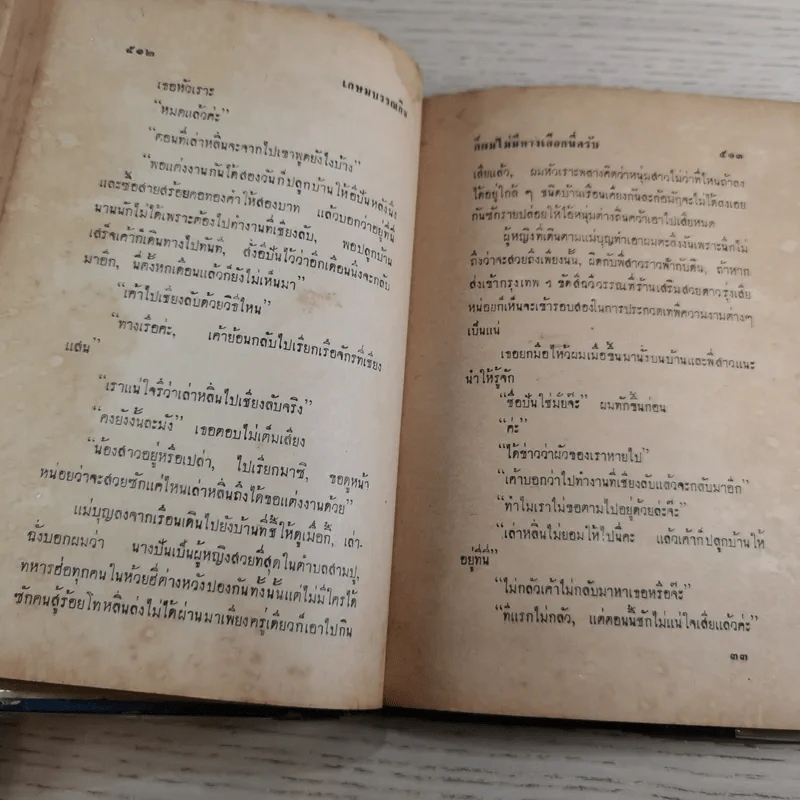 ๕๑๒
เกษมบรรณกิจ
เธอหัวเราะ
“หมดแล้วค่ะ”
“ตอนที่เล่าหลินจะจากไปเขาพูดยังไงบ้าง”
“พอแต่งงานกันได้สองวันก็ปลูกบ้านให้อีปันหลังนึง
และซื้อสายสร้อยคอทองคำให้สองบาท แล้วบอกว่าอยู่ที่นี่
นานนักไม่ได้เพราะต้องไปทำงานที่เชียงลับ, พอปลูกบ้าน
เสร็จเค้าก็เดินทางไปทันที, สั่งอีปันไว้ว่าอีกเดือนนึ่งจะกลับ
มาอีก, นี่ตั้งหกเดือนแล้วก็ยังไม่เห็นมา”
“เค้าไปเชียงลับด้วยวิธีไหน”
“ทางเรือค่ะ, เค้าย้อนกลับไปเรียกเรือจักรที่เชียง
แสน”
“เราแน่ใจรึว่าเล่าหลินไปเชียงลับจริง”
“คงยังงั้นละมัง” เธอตอบไม่เต็มเสียง
“น้องสาวอยู่หรือเปล่า, ไปเรียกมาซิ, ขอดูหน้า
หน่อยว่าจะสวยซักแค่ไหนเล่าหลินถึงได้ขอแต่งงานด้วย”
แม่บุญลงจากเรือนเดินไปยังบ้านที่ชี้ให้ดูเมื่อกี้, เล่า-
ฉั่งบอกผมว่า นางปันเป็นผู้หญิงสวยที่สุดในตำบลสามปู,
ทหารฮ่อทุกคนในห้วยฮี่ต่างหวังปองกันทั้งนั้นแต่ไม่มีใครได้
ซักคนสู้ร้อยโทหลินส่งไม่ได้ผ่านมาเพียงครู่เดียวก็เอาไปกิน
ก็ผมไม่มีทางเลือกนี่ครับ
๕๑๓
เสียแล้ว, ผมหัวเราะพลางคิดว่าหนุ่มสาวไม่ว่าที่ไหนถ้าลง
ได้อยู่ใกล้ ๆ ชนิดบ้านเรือนเคียงกันละก้อมักจะไม่ได้ลงเอย
กันซักรายปล่อยให้ไอ้หนุ่มต่างถิ่นคว้าเอาไปเสียหมด
ผู้หญิงที่เดินตามแม่บุญทำเอาผมตะลึงงันเพราะนึกไม่
ถึงว่าจะสวยถึงเพียงนั้น, ผิดกับพี่สาวราวฟ้ากับดิน, ถ้าหาก
ส่งเข้ากรุงเทพ ฯ ขัดสีฉวีวรรณที่ร้านเสริมสวยดาวรุ่งเสีย
หน่อยก็เห็นจะเข้ารอบสองในการประกวดเทพีความงามต่างๆ
เป็นแน่
เธอยกมือไหว้ผมเมื่อขึ้นมานั่งบนบ้านและพี่สาวแนะ
นำให้รู้จัก
“ชื่อปันใช่มั้ยจ๊ะ” ผมทักขึ้นก่อน
“ค่ะ”
“ได้ข่าวว่าผัวของเราหายไป”
“เค้าบอกว่าไปทำงานที่เชียงลับแล้วจะกลับมาอีก”
“ทำไมเราไม่ขอตามไปอยู่ด้วยล่ะจ๊ะ”
“เล่าหลินไม่ยอมให้ไปนี่คะ แล้วเค้าก็ปลูกบ้านให้
อยู่ที่นี่”
“ไม่กลัวเค้าไม่กลับมาหาเธอหรือจ๊ะ”
“ทีแรกไม่กลัว, แต่ตอนนี้ชักไม่แน่ใจเสียแล้วค่ะ”
๓๓